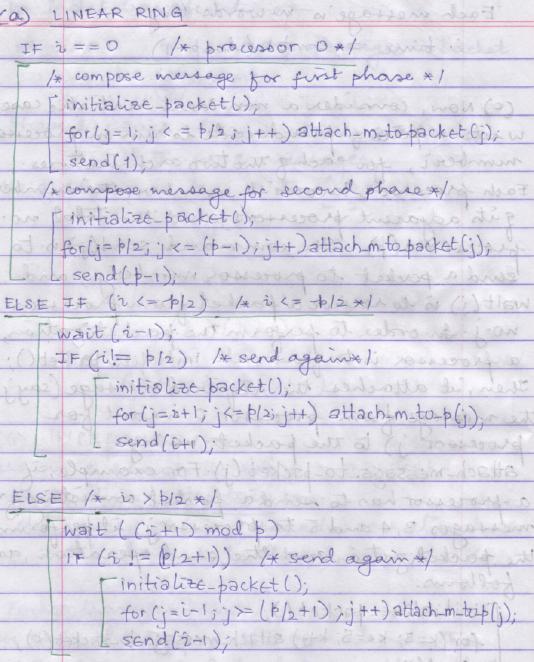 (a) LINEAR RING
IF i == 0 /* processor 0 */
/* compose message for first phase */
initialize-packet();
for(j=1; j<=p/2; j++) attach_m_to_packet(j);
send(1);
/* compose message for second phase */
initialize-packet();
for(j=p/2; j<=(p-1); j++) attach_m_to_packet(j);
send(p-1);
ELSE IF (i<=p/2) /* i<=p/2 */
wait(i-1);
IF (i!= p/2) /* send again */
initialize-packet();
for(j=i+1; j<=p/2; j++) attach_m_to_p(j);
send(i+1);
ELSE /* i>p/2 */
wait((i+1) mod p)
IF (i!=(p/2+1)) /* send again */
initialize-packet();
for(j=i-1; j>=(p/2+1); j++) attach_m_to_p(j);
send(i-1);